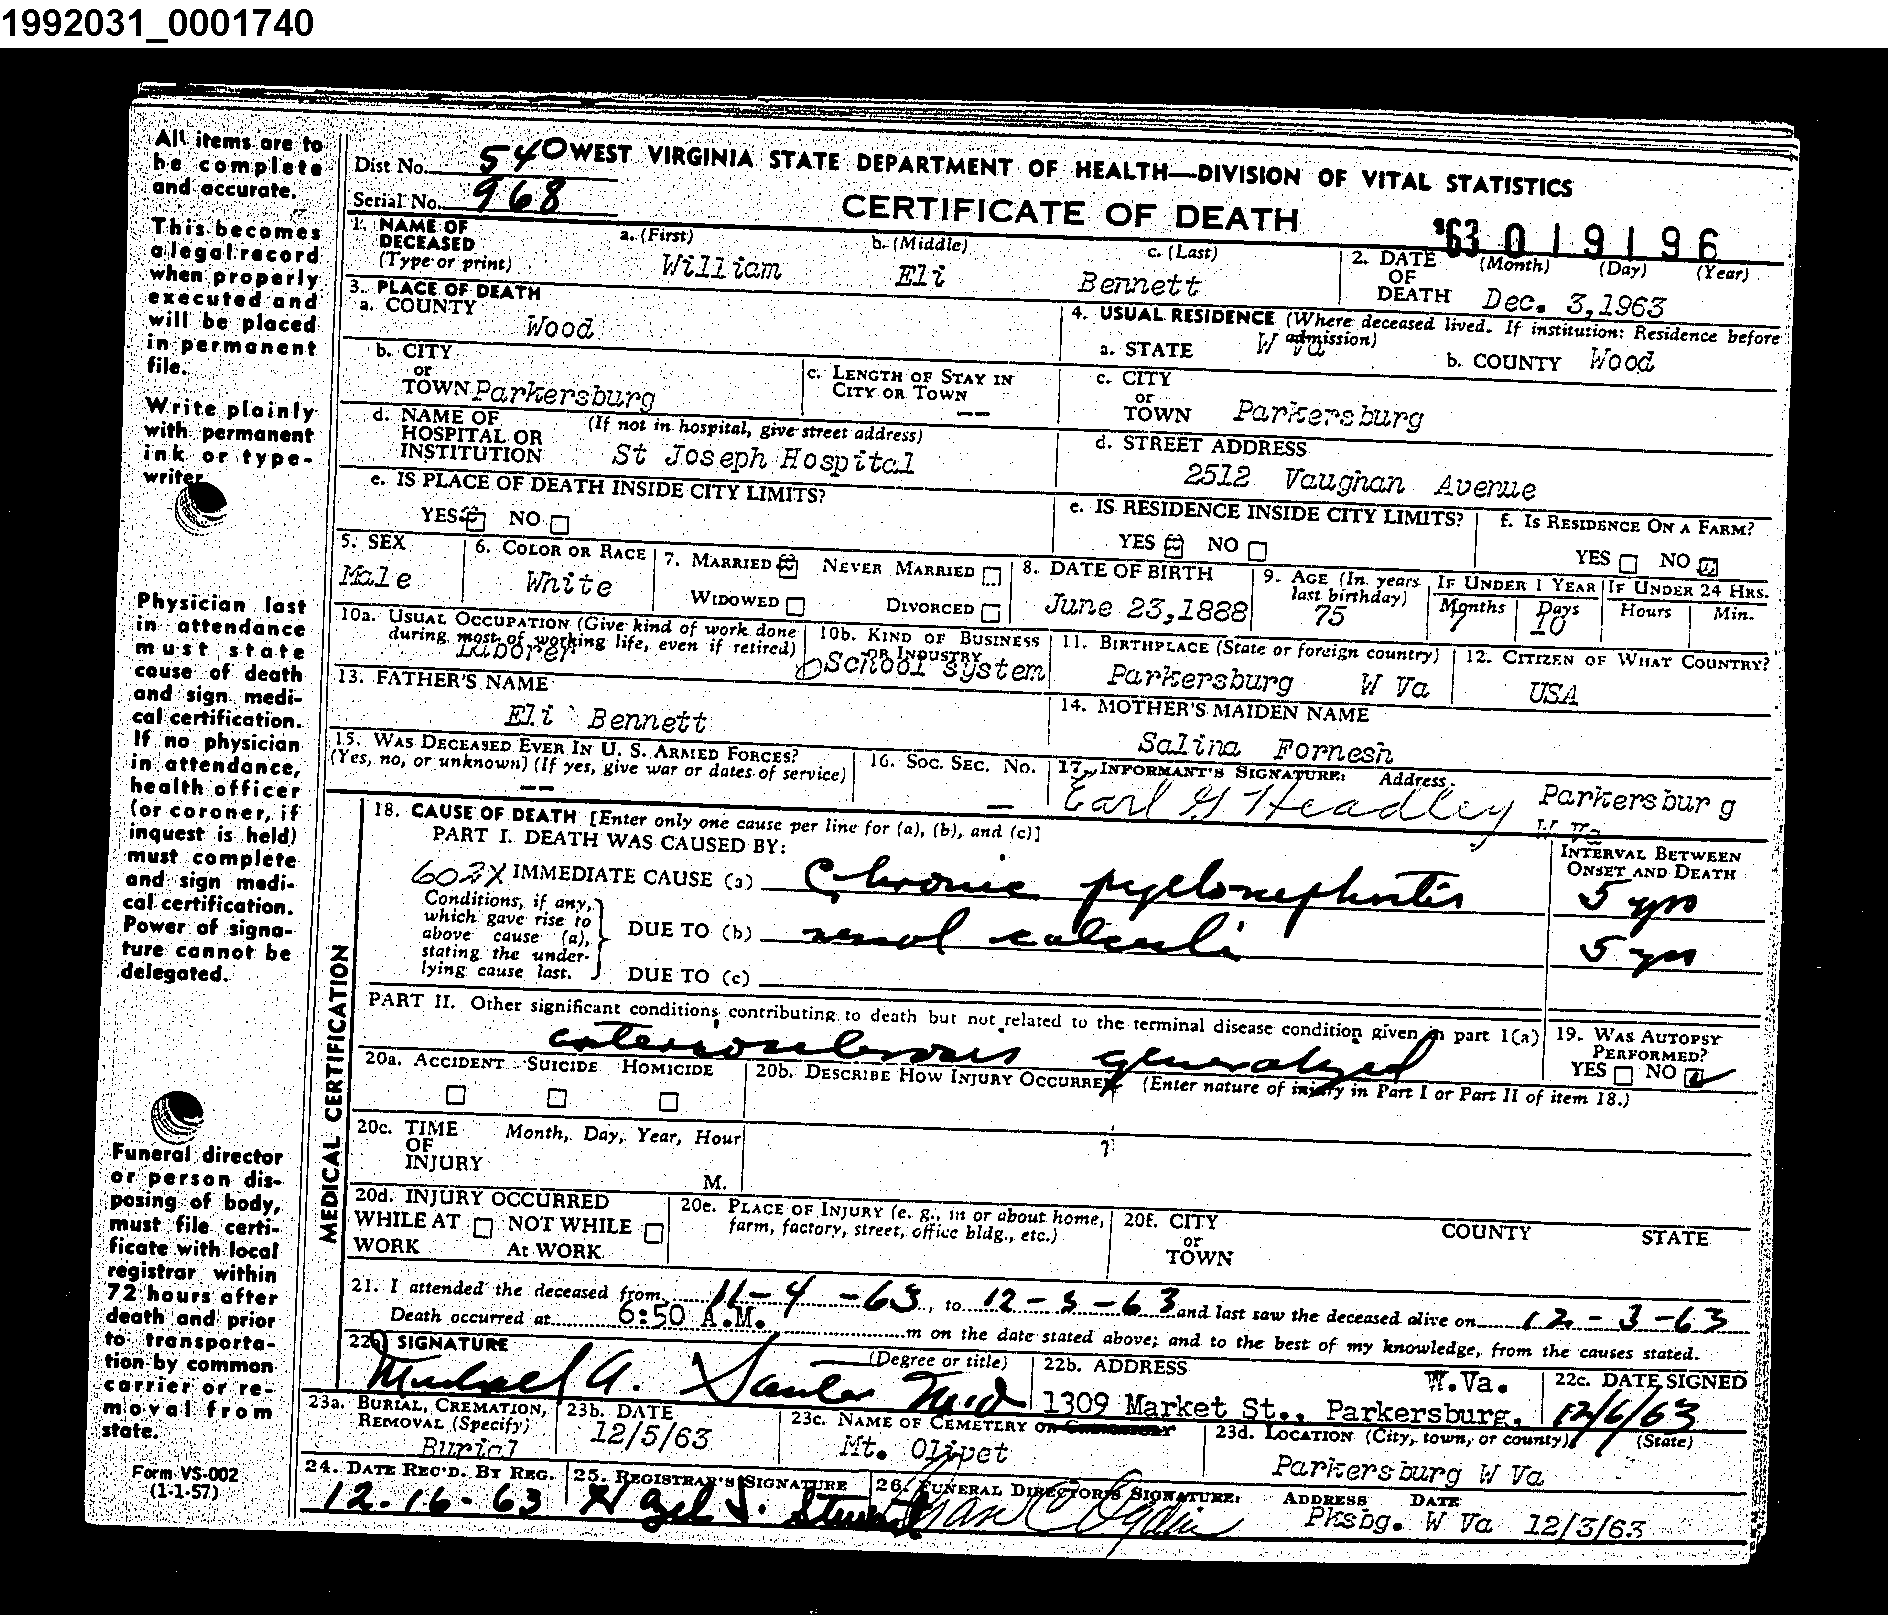 1992031_0001740
All items are to
be complete
and accurate.
This becomes
a legal record
when properly
executed and
will be placed
in permanent
file.
Write plainly
with permanent
ink or type-
writer
Physician last
in attendance
must state
cause of death
and sign medi-
cal certification.
If no physician
in attendance,
health officer
(or coroner, if
inquest is held)
must complete
and sign medi-
cal certification.
Power of signa-
ture cannot be
delegated.
Funeral director
or person dis-
posing of body,
must file certi-
ficate with local
registrar within
72 hours after
death and prior
to transporta-
tion by common
carrier or re-
moval from
state.
Form VS-002
(1-1-57)
Dist No. 540 WEST VIRGINIA STATE DEPARTMENT OF HEALTH—DIVISION OF VITAL STATISTICS
Serial No. 968 CERTIFICATE OF DEATH
'63 019196
1. NAME OF DECEASED (Type or print) a. (First) b. (Middle) c. (Last)
William Eli Bennett
2. DATE OF DEATH (Month) (Day) (Year)
Dec. 3,1963
3. PLACE OF DEATH
a. COUNTY Wood
4. USUAL RESIDENCE (Where deceased lived. If institution: Residence before admission)
a. STATE W Va b. COUNTY Wood
b. CITY or TOWN Parkersburg
c. LENGTH OF STAY IN CITY OR TOWN --
c. CITY or TOWN Parkersburg
d. NAME OF HOSPITAL OR INSTITUTION (If not in hospital, give street address)
St Joseph Hospital
d. STREET ADDRESS
2512 Vaughan Avenue
e. IS PLACE OF DEATH INSIDE CITY LIMITS?
YES NO
e. IS RESIDENCE INSIDE CITY LIMITS?
YES NO
f. IS RESIDENCE ON A FARM?
YES NO
5. SEX
Male
6. COLOR OR RACE
White
7. MARRIED NEVER MARRIED
WIDOWED DIVORCED
8. DATE OF BIRTH
June 23,1888
9. AGE (In years last birthday)
75
IF UNDER 1 YEAR IF UNDER 24 HRS.
Months Days Hours Min.
7 10
10a. USUAL OCCUPATION (Give kind of work done during most of working life, even if retired)
Laborer
10b. KIND OF BUSINESS OR INDUSTRY
School system
11. BIRTHPLACE (State or foreign country)
Parkersburg W Va
12. CITIZEN OF WHAT COUNTRY?
USA
13. FATHER'S NAME
Eli Bennett
14. MOTHER'S MAIDEN NAME
Salina Fornesh
15. WAS DECEASED EVER IN U. S. ARMED FORCES?
(Yes, no, or unknown) (If yes, give war or dates of service)
--
16. SOC. SEC. No.
—
17. INFORMANT'S SIGNATURE: Address
Earl G Headley Parkersburg
W Va
MEDICAL CERTIFICATION
18. CAUSE OF DEATH [Enter only one cause per line for (a), (b), and (c)]
PART I. DEATH WAS CAUSED BY:
INTERVAL BETWEEN ONSET AND DEATH
602X IMMEDIATE CAUSE (a) Chronic pyelonephritis 5 yrs
Conditions, if any, which gave rise to above cause (a), stating the underlying cause last.
DUE TO (b) renal calculi 5 yrs
DUE TO (c)
PART II. Other significant conditions contributing to death but not related to the terminal disease condition given in part I(a)
arteriosclerosis generalized
19. WAS AUTOPSY PERFORMED?
YES NO
20a. ACCIDENT SUICIDE HOMICIDE
20b. DESCRIBE HOW INJURY OCCURRED (Enter nature of injury in Part I or Part II of item 18.)
20c. TIME OF INJURY Month, Day, Year, Hour
M.
20d. INJURY OCCURRED
WHILE AT WORK NOT WHILE At WORK
20e. PLACE OF INJURY (e. g., in or about home, farm, factory, street, office bldg., etc.)
20f. CITY or TOWN COUNTY STATE
21. I attended the deceased from 11-4-63, to 12-3-63 and last saw the deceased alive on 12-3-63
Death occurred at 6:50 A.M. m on the date stated above; and to the best of my knowledge, from the causes stated.
22a SIGNATURE (Degree or title)
Michael A. Santer M.D
22b. ADDRESS
1309 Market St., Parkersburg, W.Va.
22c. DATE SIGNED
12/6/63
23a. BURIAL, CREMATION, REMOVAL (Specify)
Burial
23b. DATE
12/5/63
23c. NAME OF CEMETERY OR CREMATORY
Mt. Olivet
23d. LOCATION (City, town, or county) (State)
Parkersburg W Va
24. DATE REC'D. BY REG.
12-16-63
25. REGISTRAR'S SIGNATURE
Hazel J. Stewart
26. FUNERAL DIRECTOR'S SIGNATURE: ADDRESS DATE
Ogdin Pksbg. W Va 12/3/63